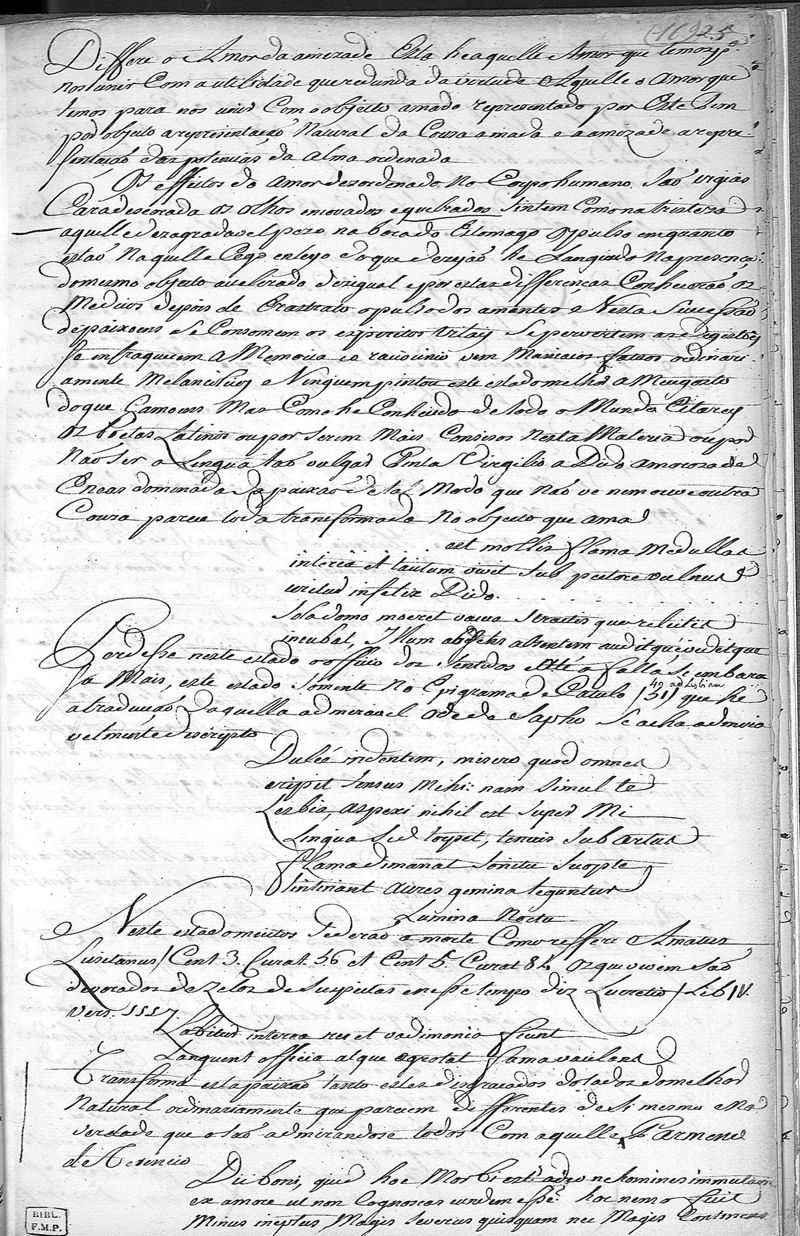 (16) 25
Differe o Amor da amizade Esta he aquelle Amor que temos pª
nos unir Com a utilidade que redunda da virtude Aquelle o Amor que
temos para nos unir Com o objeito amado representado por Este Tem
por objeto a representaçaõ Natural da Couza amada e a amizade a repre
sentaçaõ das potencias da Alma ordenada
Os effeitos do Amor dezordenado No Corpo humano Saõ vigias
Cara descorada os olhos encovados e quebrados Sintem Como na tristeza
aquelle dezagradavel pezo na boca do Estomago O pulso em quanto
estaõ Naquelle Cego enleyo do que dezejaõ he Languido Na prezença
do mesmo objeto acelerado dezigual e por estas differenças Conheceraõ os
Medicos depois de Erastrato o pulso dos amantes e Nesta Successaõ
de paixoens Se Consomem os espiritos Se pervertem as digestoes
Se enfraquecem a Memoria e o raciocinio vem Maniacos fatuos ordinari
amente Melancolicos e Ninguem pintou este estado melhor a Meu gosto
do que Camoens Mas Como he Conhecido de todo o Mundo Citarey
os Poetas Latinos ou por Serem Mais Concisos Nesta Materia ou por
Naõ Ser a Lingua taõ vulgar Pinta Virgilio a Dido amoroza de
Eneas dominada da paixaõ de tal Modo que Naõ ve nem ouve outra
Couza parece toda transformada No objecto que ama
est mollis flama Medullas
interea et tacitum vivit Sub pectore vulnus
uritur infelix Dido
Sola domo moeret vacua Stratis que relictis
incubat, Illum absens absentem audit que videt que
Perdesse neste estado o officio dos Sentidos Athe a falla Se embara
sa Mais, este estado Somente No Epigrama de Catulo (51) 49 ad Lesbiam que he
a traducçaõ daquella admiravel Ode de Sapho Se acha admira
velmente descripto
Dulce ridentem, misero quod omnes
eripit Sensus Mihi: nam Simul te
Lesbia, aspexi nihil est Super Mi
Lingua Sed torpet, tenuis Sub artus
Flama dimanat Sonitu Suopte
tintinant aures gemina teguntur
Lumina Nocte
Neste estado muitos Se deraõ a morte Como reffere Amatus
Lusitanus (Cent 3. Curat. 56 et Cent 5. Curat 84 Os que vivem Saõ
devorados de Zelos de Suspeitas e nesse tempo diz Lucretio (Lib IV.
Vers. 1117
Labitur interea res et vadimonia fiunt
Languent officia atque ægrotat fama vacilans
Transforma esta paixaõ tanto estes disgraçados dotados do melhor
Natural ordinariamente que parecem differentes de Si mesmos e Na
verdade que o Saõ admirandose todos Com aquelle Parmeno
de Terencio
Dii boni, quid hoc Morbi est? adeo ne homines immutari
ex amore ut non Cognoscas eundem esse: hoc nemo fuit
Minus ineptus, Magis Severus quisquam nec Magis Continens
BIBL.
F.M.P.